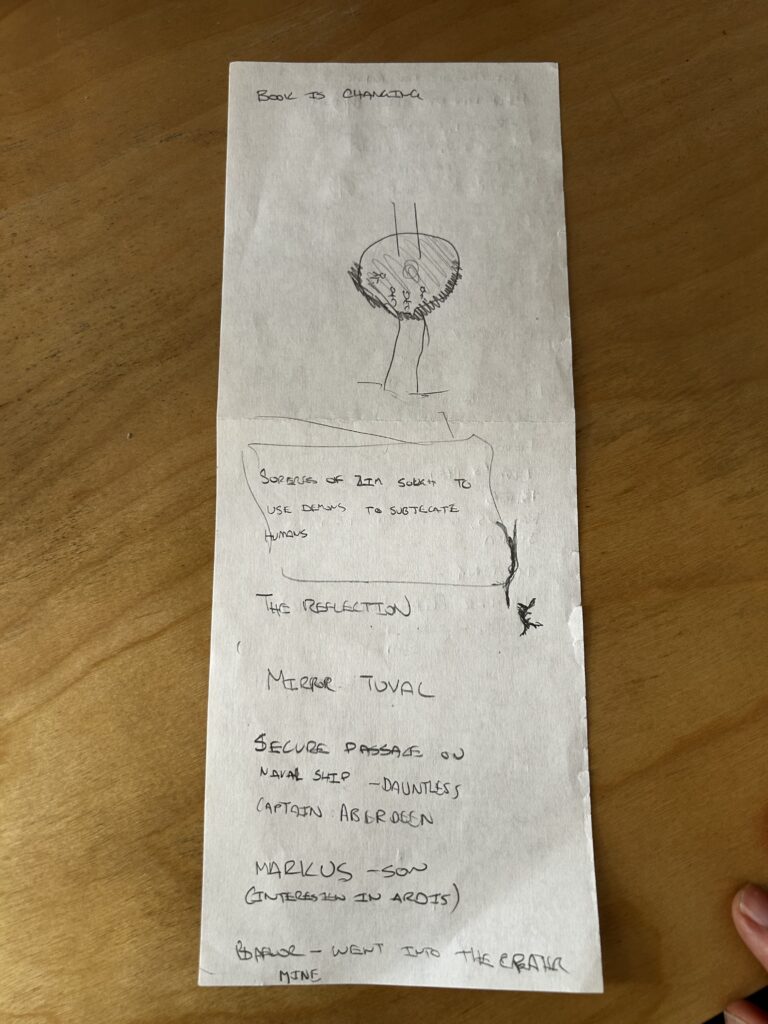 BOOK IS CHANGING
OF ZIM TO
USE DEMONS TO
HUMANS
THE REFLECTION
MIRROR TUVAL
SECURE PASSAGE ON
NAVAL SHIP - DAUNTLESS
CAPTAIN ABERDEEN
MARKUS - SON
IN ARDIS)
- WENT INTO THE CRATER
MINE